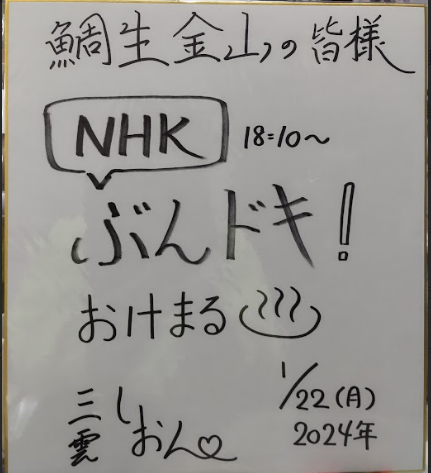 鯛生金山の皆様
NHK 18:10〜
ぶんドキ!
おけまる♨
1/22(月)
2024年
三雲しおん♡